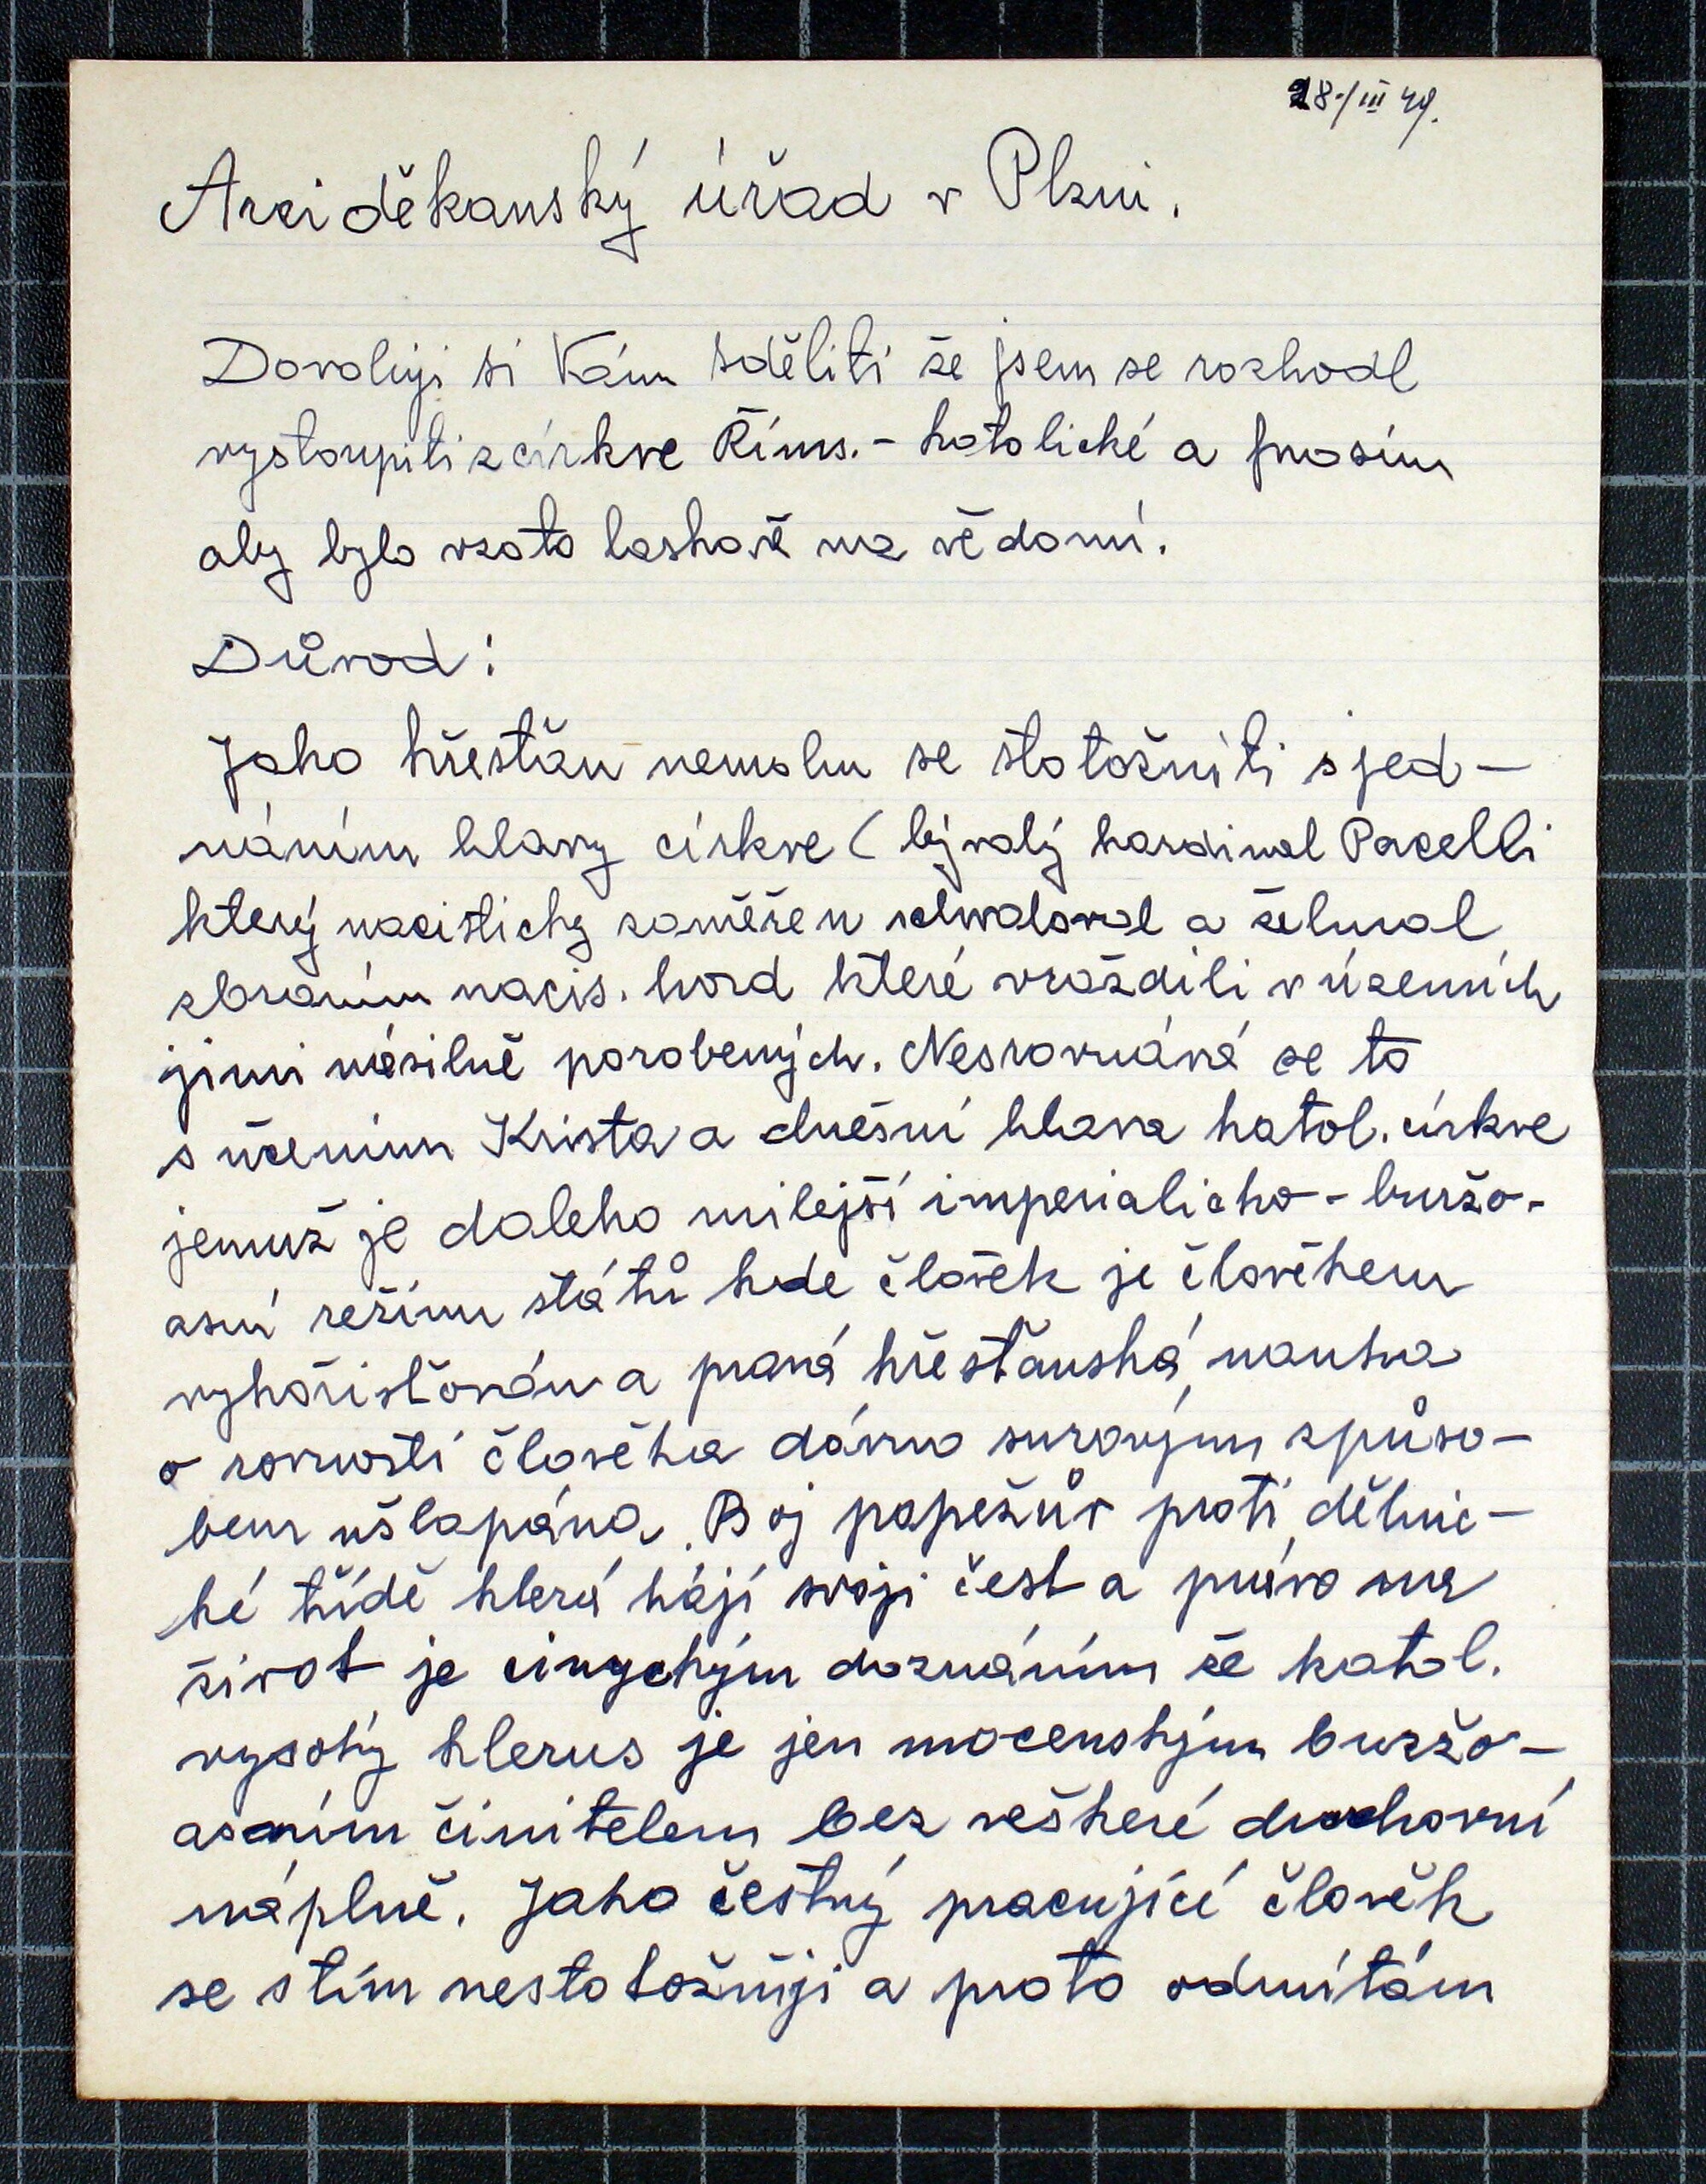 28./III 49.
Arciděkanský úřad v Plzni.
Dovoluji si Vám sděliti že jsem se rozhodl
vystoupiti z církve Říms. - katolické a prosím
aby bylo vzato laskavě na vědomí.
Důvod:
Jako křesťan nemohu se stotožniti s jed-
náním hlavy církve ( bývalý kardinal Pacelli
který nacistický zaměřen schvaloval a žehnal
zbraním nacis. hord které vraždili v územích
jimi násilně porobených. Nesrovnává se to
s učením Krista a dnešní hlava katol. církve
jemuž je daleko milejší imperialicko - buržo-
asní režimu států kde člověk je člověkem
vykořisťován a pravá křesťanská nauka
o rovnosti člověka dávno surovým způso-
bem ušlapána. Boj papežův proti dělnic-
ké třídě která hájí svoji čest a právo na
život je cinyckým doznáním že katol.
vysoký klerus je jen mocenským buržo-
asním činitelem bez veškeré duchovní
náplně. Jako čestný pracující člověk
se stím nestotožňuji a proto odmítám